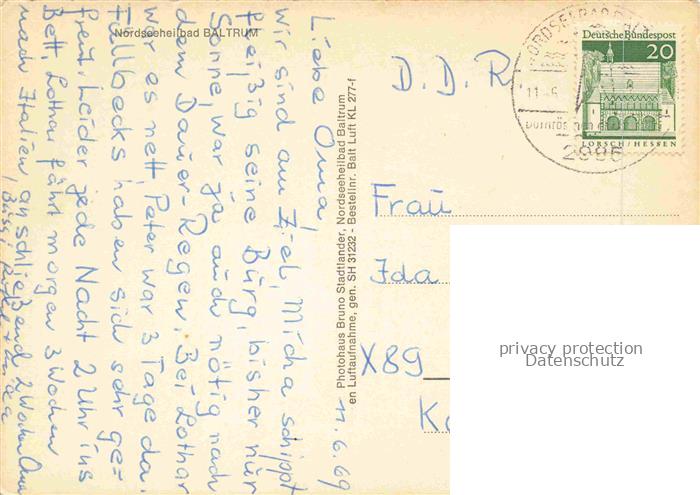 Nordseeheilbad BALTRUM
11.6.69
Liebe Oma,
wir sind am Ziel, Micha schippt
fleißig seine Burg, bisher nur
Sonne, war ja auch nötig nach
dem Dauer-Regen. Bei Lothar
war es nett, Peter war 3 Tage da.
Füllbecks haben sich sehr ge=
freut. Leider jede Nacht 2 Uhr ins
Bett. Lothar fährt morgen 3 Wochen
nach Italien anschließend 2 Wochen
Photohaus Bruno Stadtlander, Nordseeheilbad Baltrum
en Luftaufnahme, gen. SH 31232 - Bestellnr. Balt Luft KL 277-f
D.D.R
Deutsche Bundespost
20
LORSCH / HESSEN
2985
Frau
Ida
X89
privacy protection
Datenschutz